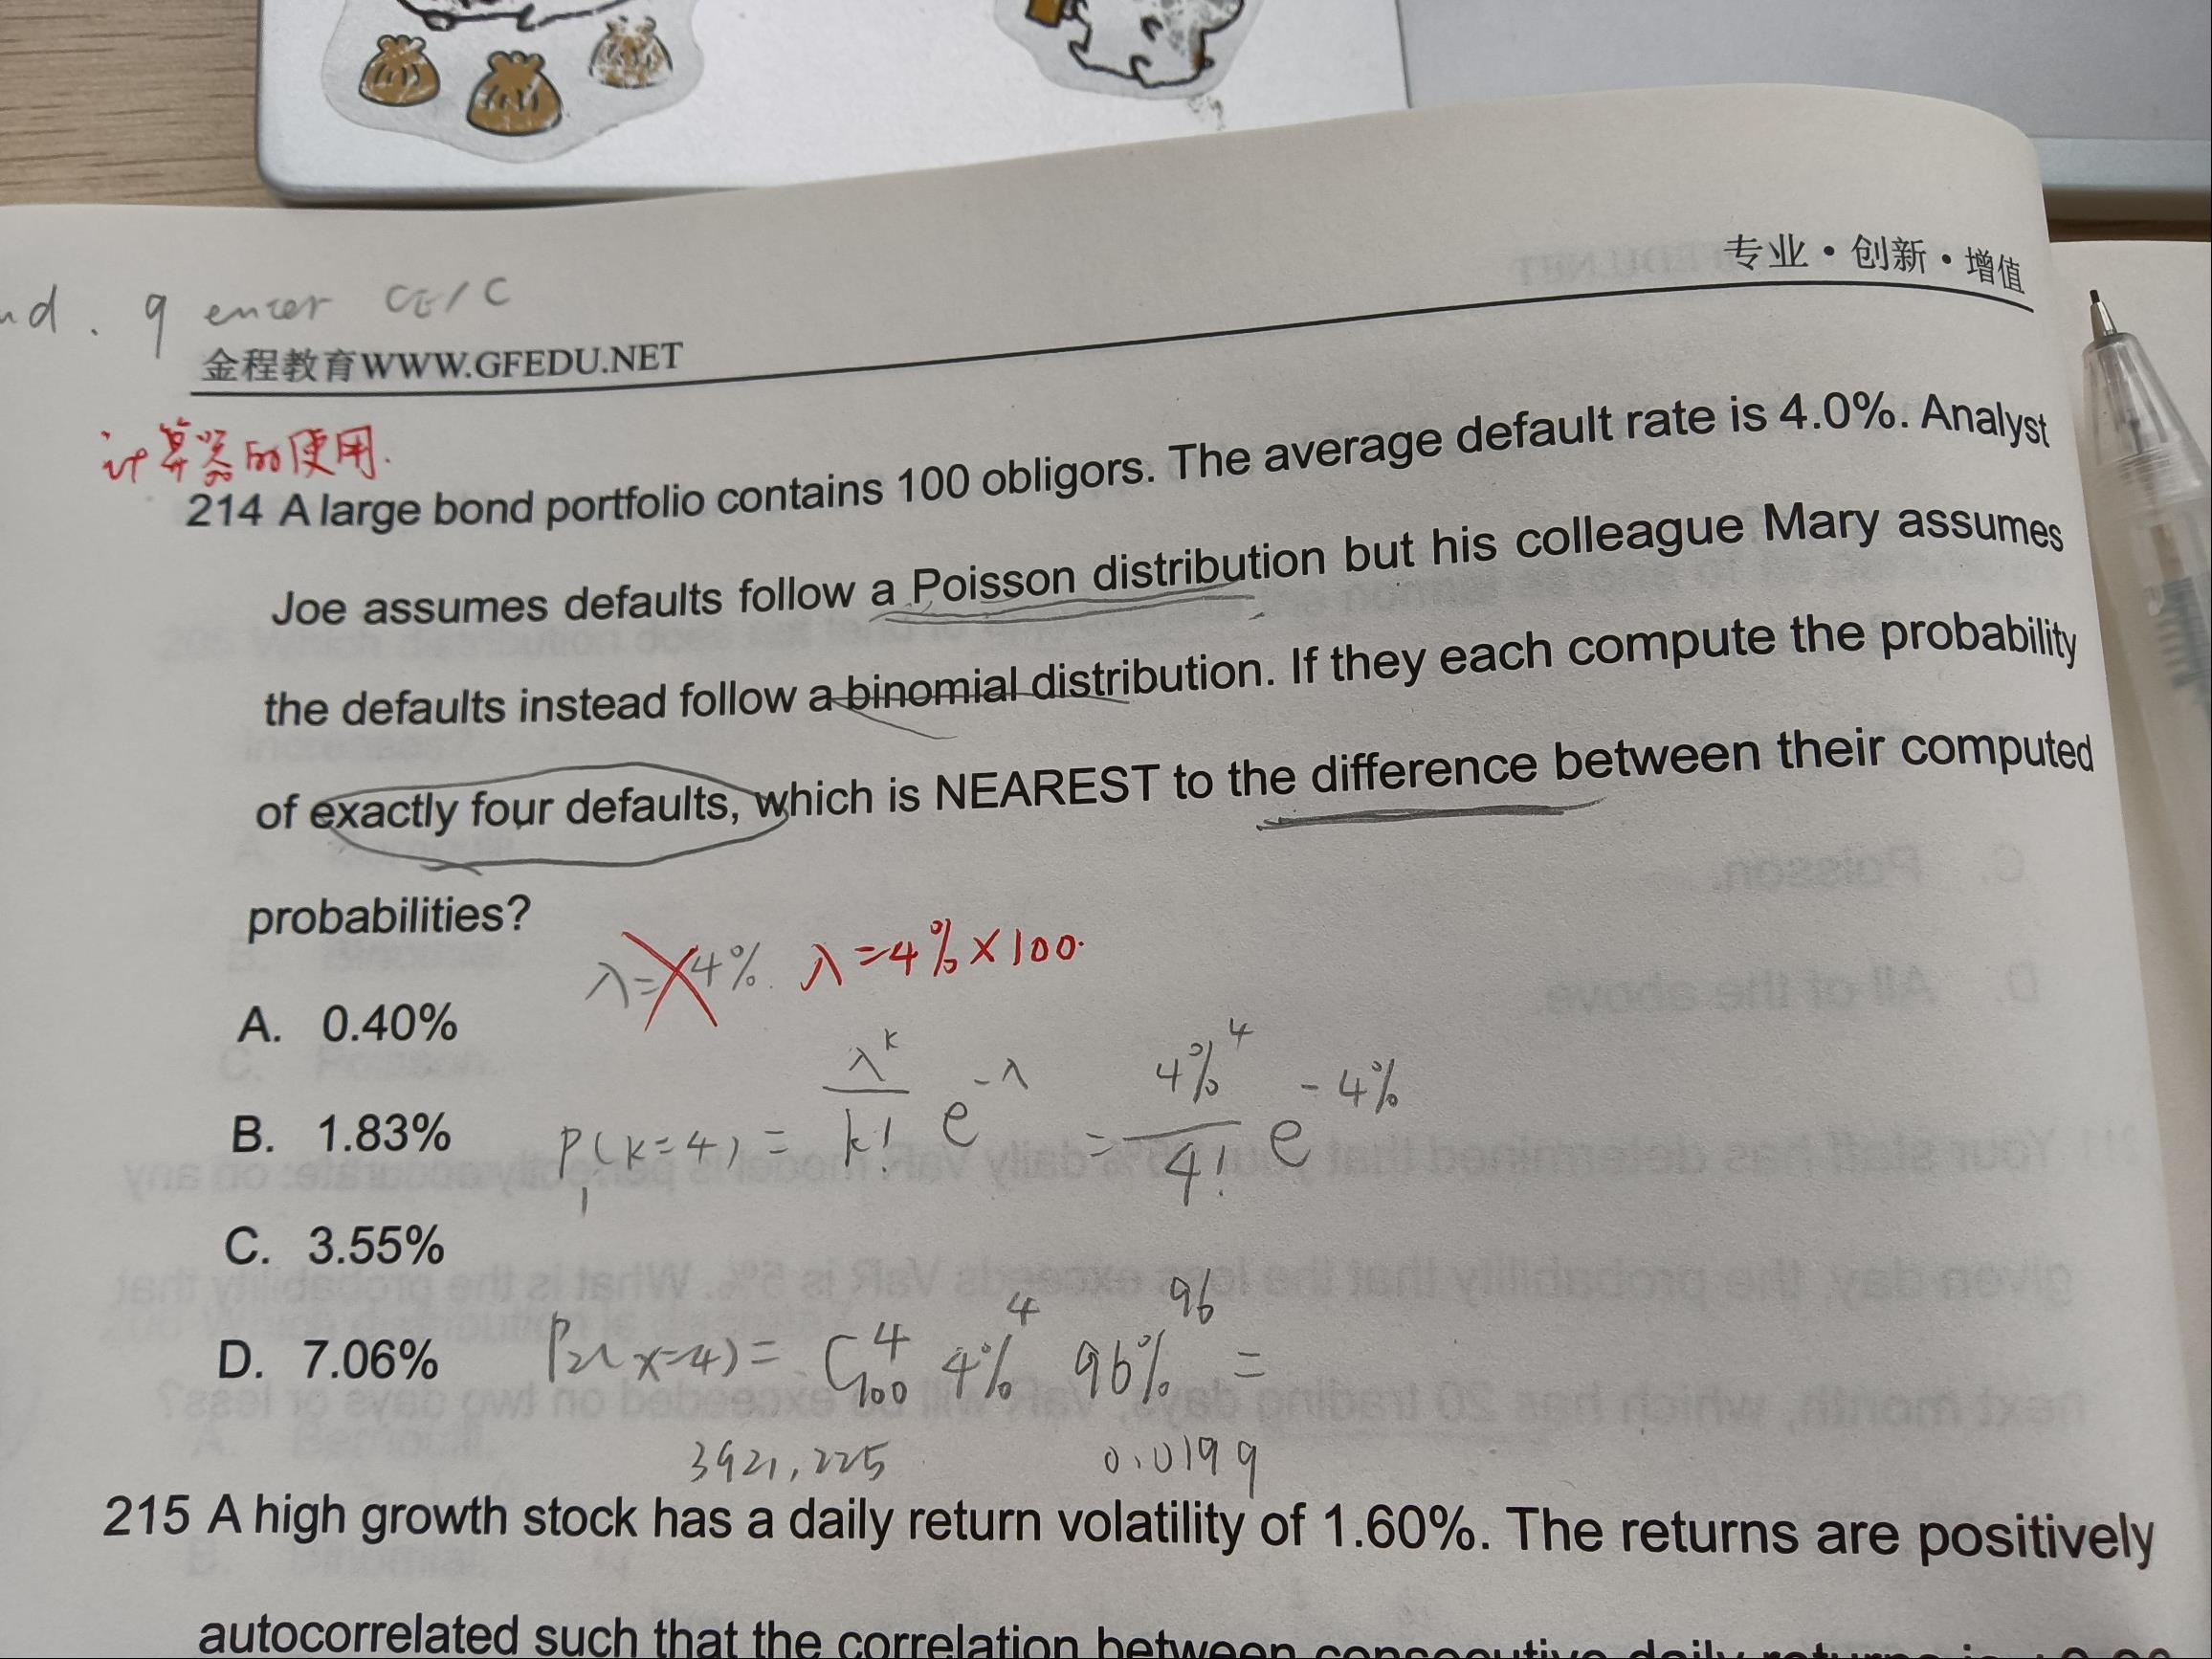 nd. 9 enter CE/C
专业·创新·增值
金程教育WWW.GFEDU.NET
计算器的使用.
214 A large bond portfolio contains 100 obligors. The average default rate is 4.0%. Analyst
Joe assumes defaults follow a Poisson distribution but his colleague Mary assumes
the defaults instead follow a binomial distribution. If they each compute the probability
of exactly four defaults, which is NEAREST to the difference between their computed
probabilities?
λ=4%. λ=4%×100.
A. 0.40%
B. 1.83%
P₁(k=4) = λ^k/k! e^-λ = 4%^4/4! e^-4%
C. 3.55%
D. 7.06%
P₂(x=4) = C₁₀₀^4 4%^4 96%^96 =
3921,225 0.0199
215 A high growth stock has a daily return volatility of 1.60%. The returns are positively
autocorrelated such that the correlation between consecutive daily returns is